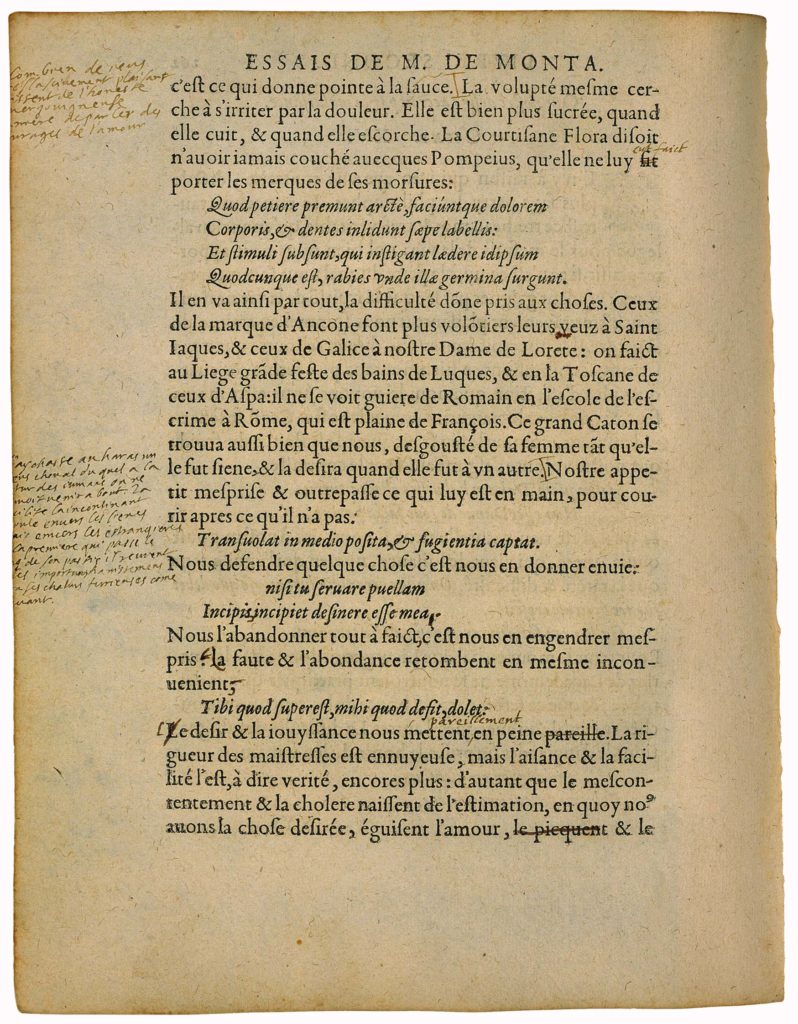 ESSAIS DE M. DE MONTA.
Combien de
plaisant
de l'honeste
vergouigneuse
de parler des
ouurages de l'amour
c'est ce qui donne pointe à la sauce. La volupté mesme cer-
che à s'irriter par la douleur. Elle est bien plus sucrée, quand
elle cuit, & quand elle escorche. La Courtisane Flora disoit
eut faict
n'auoir iamais couché auecques Pompeius, qu'elle ne luy fit
porter les merques de ses morsures:
Quod petiere premunt arctè, faciúntque dolorem
Corporis, & dentes inlidunt sæpe labellis:
Et stimuli subsunt, qui instigant lædere idipsum
Quodcunque est, rabies vnde illæ germina surgunt.
Il en va ainsi par tout, la difficulté dōne pris aux choses. Ceux
de la marque d'Ancone font plus volōtiers leurs veuz à Saint
Iaques, & ceux de Galice à nostre Dame de Lorete: on faict
au Liege grāde feste des bains de Luques, & en la Toscane de
ceux d'Aspa: il ne se voit guiere de Romain en l'escole de l'es-
crime à Rōme, qui est plaine de François. Ce grand Caton se
trouua aussi bien que nous, desgousté de sa femme tāt qu'el-
le fut siene, & la desira quand elle fut à vn autre. Nostre appe-
tit mesprise & outrepasse ce qui luy est en main, pour cou-
rir apres ce qu'il n'a pas:
chasse au haras un
cheual duquel a la
des iumans on ne
uenir a bout
l'a incontinant
enuers les sienes
enuers les estrangieres
la premiere qui passe le
de son pastis il reuient
importuns hannissemens
ses chaleurs furieuses come
auant.
Transuolat in medio posita, & fugientia captat.
Nous defendre quelque chose c'est nous en donner enuie:
nisi tu seruare puellam
Incipis, incipiet desinere esse mea.
Nous l'abandonner tout à faict, c'est nous en engendrer mes-
pris: la faute & l'abondance retombent en mesme incon-
uenient:
Tibi quod superest, mihi quod desit, dolet:
pareillement
Le desir & la iouyssance nous mettent en peine pareille. La ri-
gueur des maistresses est ennuyeuse, mais l'aisance & la faci-
lité l'est, à dire verité, encores plus: d'autant que le mescon-
tentement & la cholere naissent de l'estimation, en quoy noꝰ
auons la chose desirée, éguisent l'amour, le picquent & le